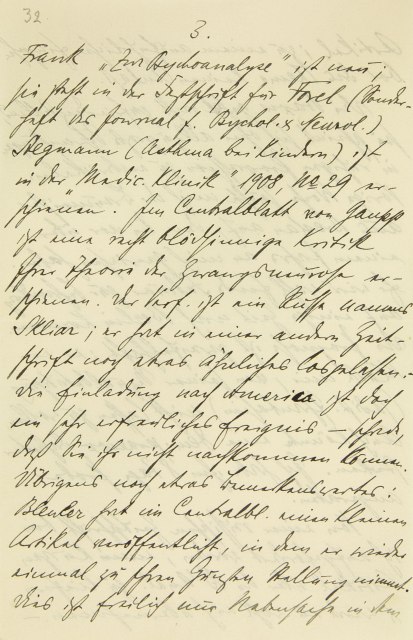 32
3.
Frank „Zur Psychoanalyse" ist neu;
sie steht in der Festschrift für Forel (Sonder-
heft des Journal f. Psychol. & Neurol.)
Stegmann (Asthma bei Kindern) ist
in der „Medic. Klinik" 1908, No 29 er-
schienen. Im Centralblatt von Gaupp
ist eine recht blödsinnige Kritik
Ihrer Theorie der Zwangsneurose er-
schienen. Der Verf. ist ein Russe namens
Skliar; er hat in einer andern Zeit-
schrift noch etwas Ähnliches losgelassen. -
Die Einladung nach America ist doch
ein sehr erfreuliches Ereignis — schade,
daß Sie ihr nicht nachkommen können.
Übrigens noch etwas Bemerkenswertes:
Bleuler hat im Centralbl. einen kleinen
Artikel veröffentlicht, in dem er wieder
einmal zu Ihren Gunsten Stellung nimmt.
Dies ist freilich nur Nebensache in dem